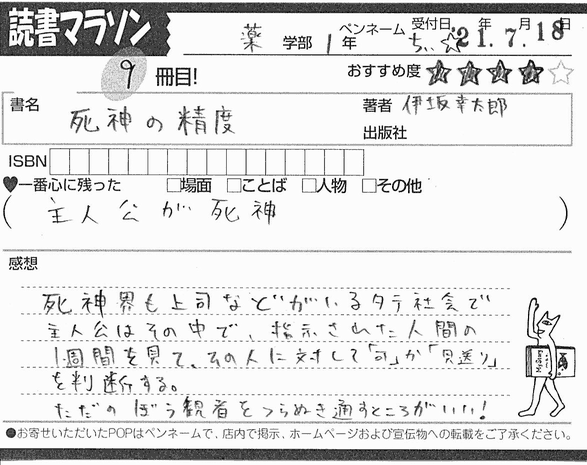 読書マラソン
薬 学部 1年 ペンネーム ちぃ☆ 受付日 21年7月18日
9 冊目! おすすめ度 ★★★★☆
書名 死神の精度 著者 伊坂幸太郎
出版社
ISBN
♥一番心に残った □場面 □ことば □人物 □その他
(主人公が死神)
感想
死神界も上司などがいるタテ社会で
主人公はその中で、指示された人間の
1週間を見て、その人に対して「可」か「見送り」
を判断する。
ただのぼう観者をつらぬき通すところがいい!
●お寄せいただいたPOPはペンネームで、店内で掲示、ホームページおよび宣伝物への転載をご了承ください。